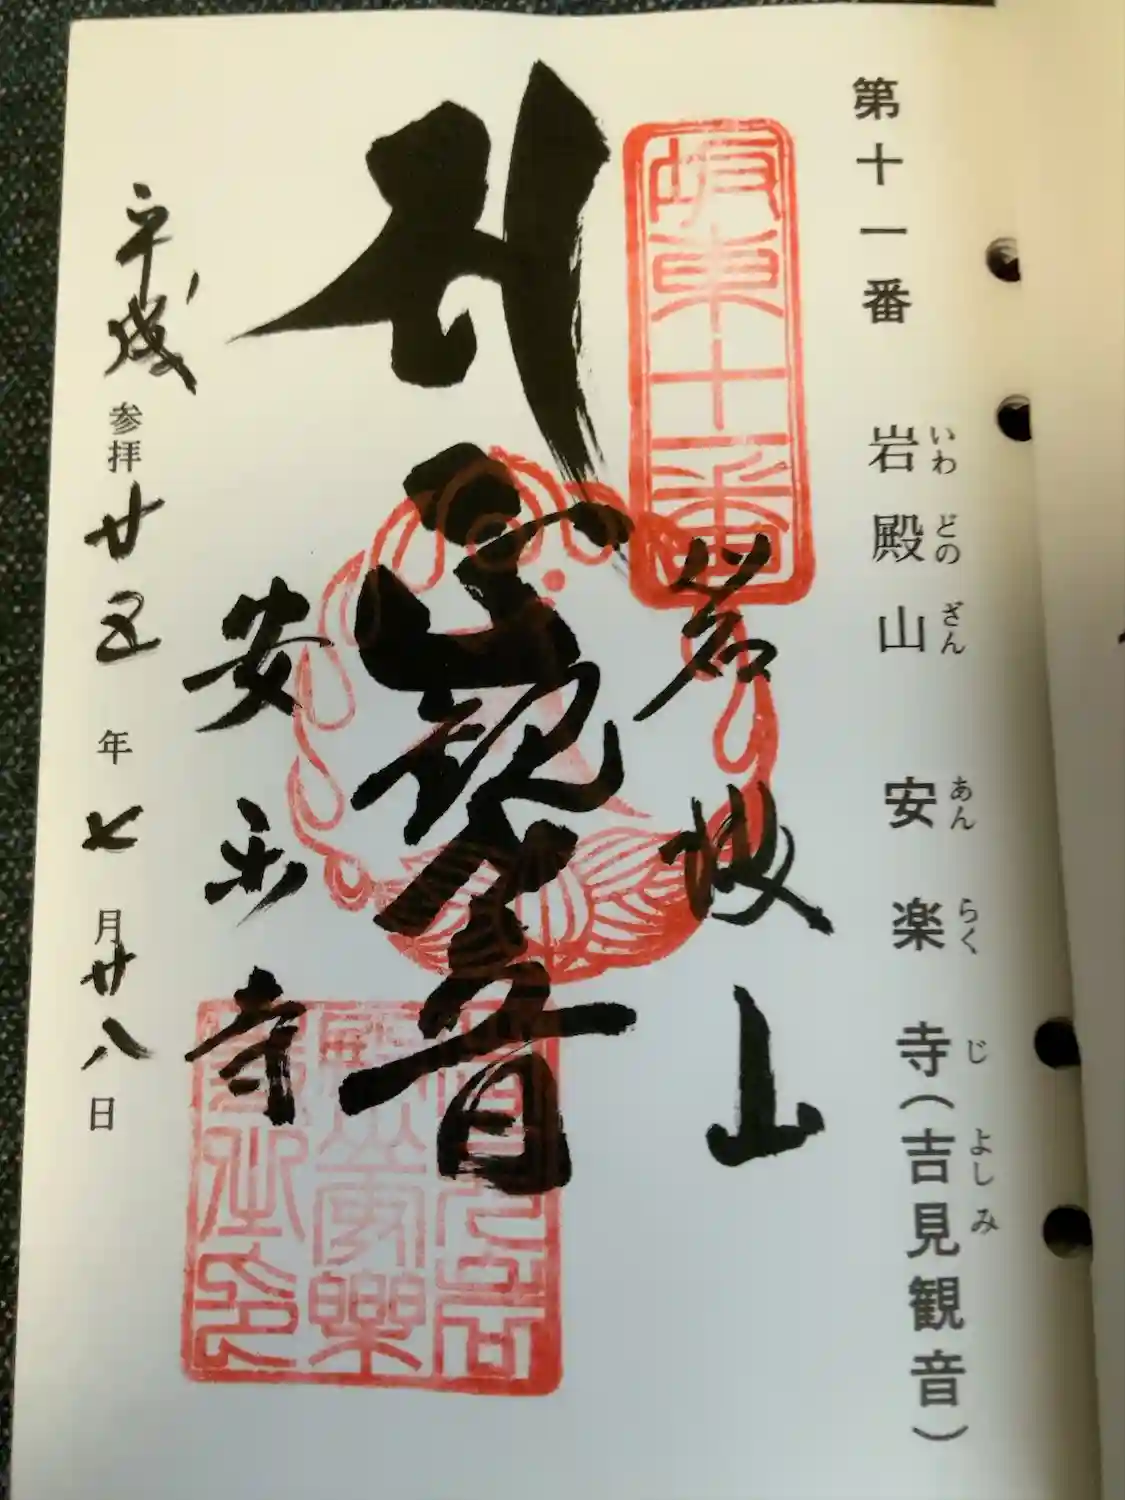 第十一番 岩殿山 安楽寺(吉見観音)
いわ どの ざん あん らく じ よしみ
坂東十一番
岩殿山
観音
安楽寺
平成 参拝 廿五年七月廿八日